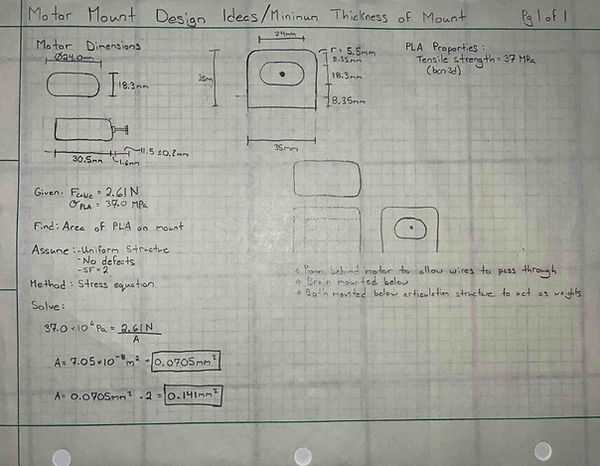 Motor Mount Design Ideas/Minimum Thickness of Mount Pg 1 of 1
Motor Dimensions
Ø24.0mm
18.3mm
30.5mm
1.6mm
11.5 ±0.2mm
24mm
35mm
r = 5.5mm
8.35mm
18.3mm
8.35mm
35mm
PLA Properties:
Tensile strength = 37 MPa
(bcn3d)
Given: Fcable = 2.61 N
σPLA = 37.0 MPa
Find: Area of PLA on mount
Assume: -Uniform Structure
-No defects
-SF = 2
Method: Stress equation
Solve:
37.0 × 10⁶ Pa = 2.61 N
A
A = 7.05 × 10⁻⁸ m² = 0.0705mm²
A = 0.0705mm² · 2 = 0.141mm²
Room behind motor to allow wires to pass through
Brain mounted below
Both mounted below articulation structure to act as weights